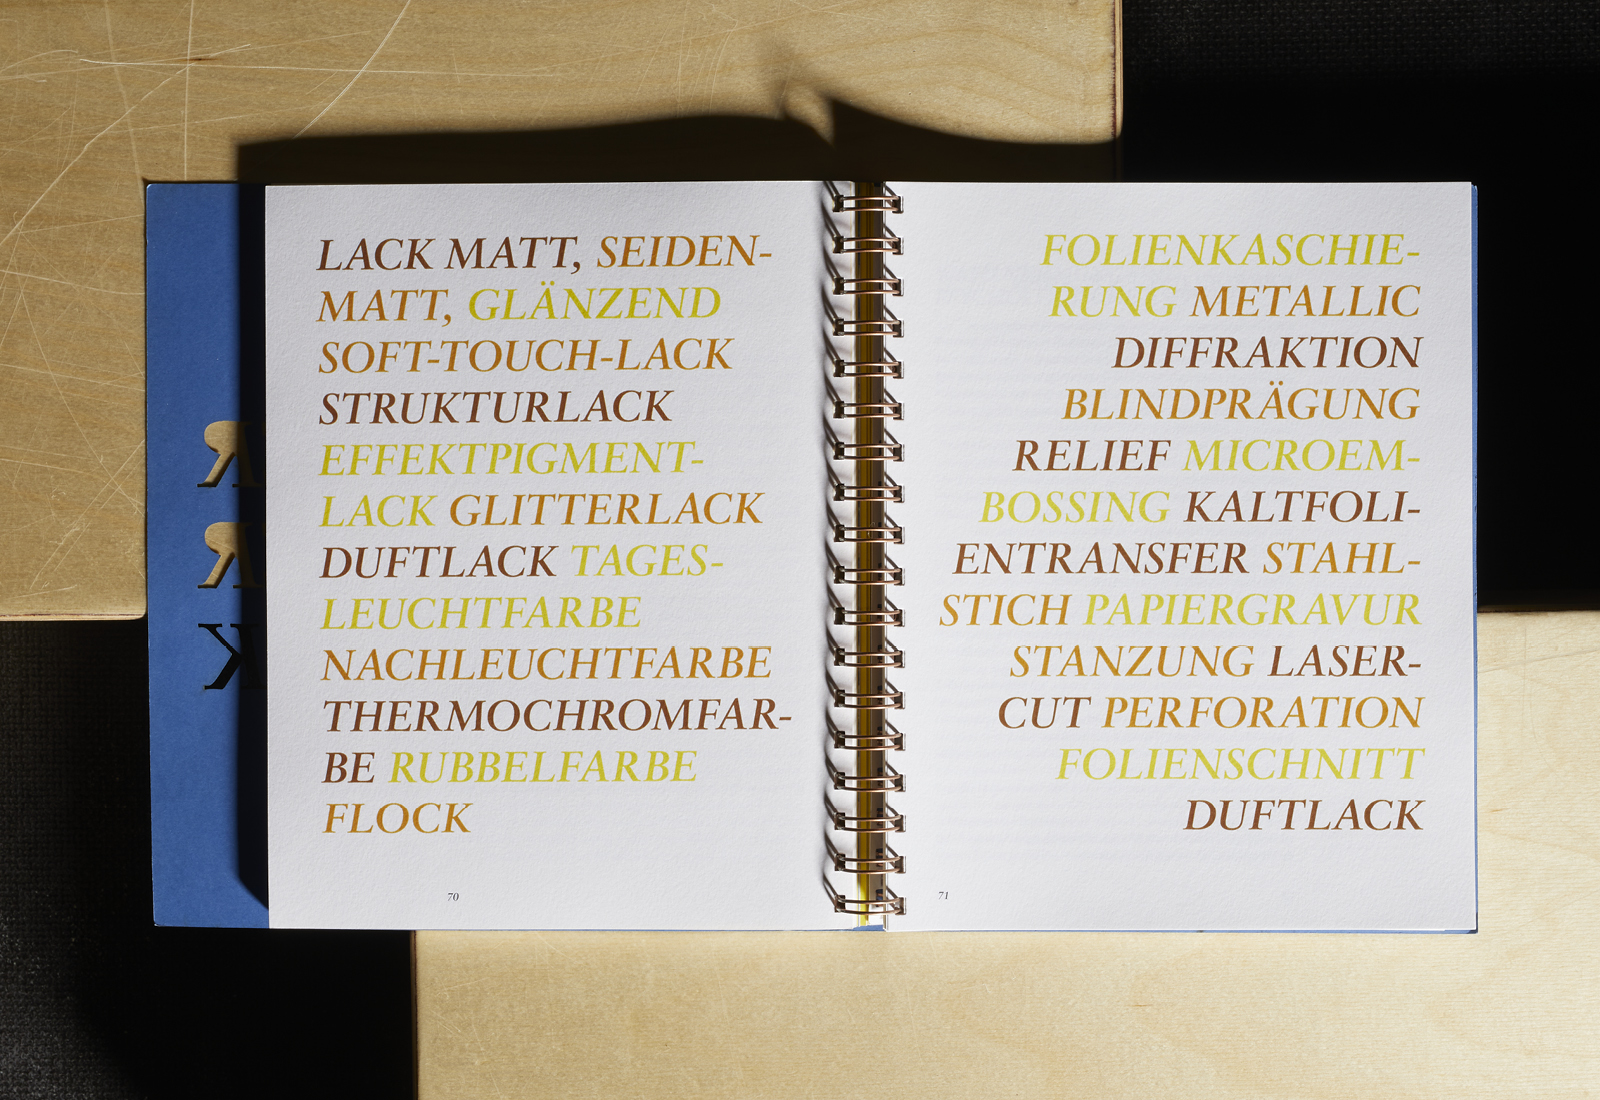 LACK MATT, SEIDEN-
MATT, GLÄNZEND
SOFT-TOUCH-LACK
STRUKTURLACK
EFFEKTPIGMENT-
LACK GLITTERLACK
DUFTLACK TAGES-
LEUCHTFARBE
NACHLEUCHTFARBE
THERMOCHROMFAR-
BE RUBBELFARBE
FLOCK
70
FOLIENKASCHIE-
RUNG METALLIC
DIFFRAKTION
BLINDPRÄGUNG
RELIEF MICROEM-
BOSSING KALTFOLI-
ENTRANSFER STAHL-
STICH PAPIERGRAVUR
STANZUNG LASER-
CUT PERFORATION
FOLIENSCHNITT
DUFTLACK
71